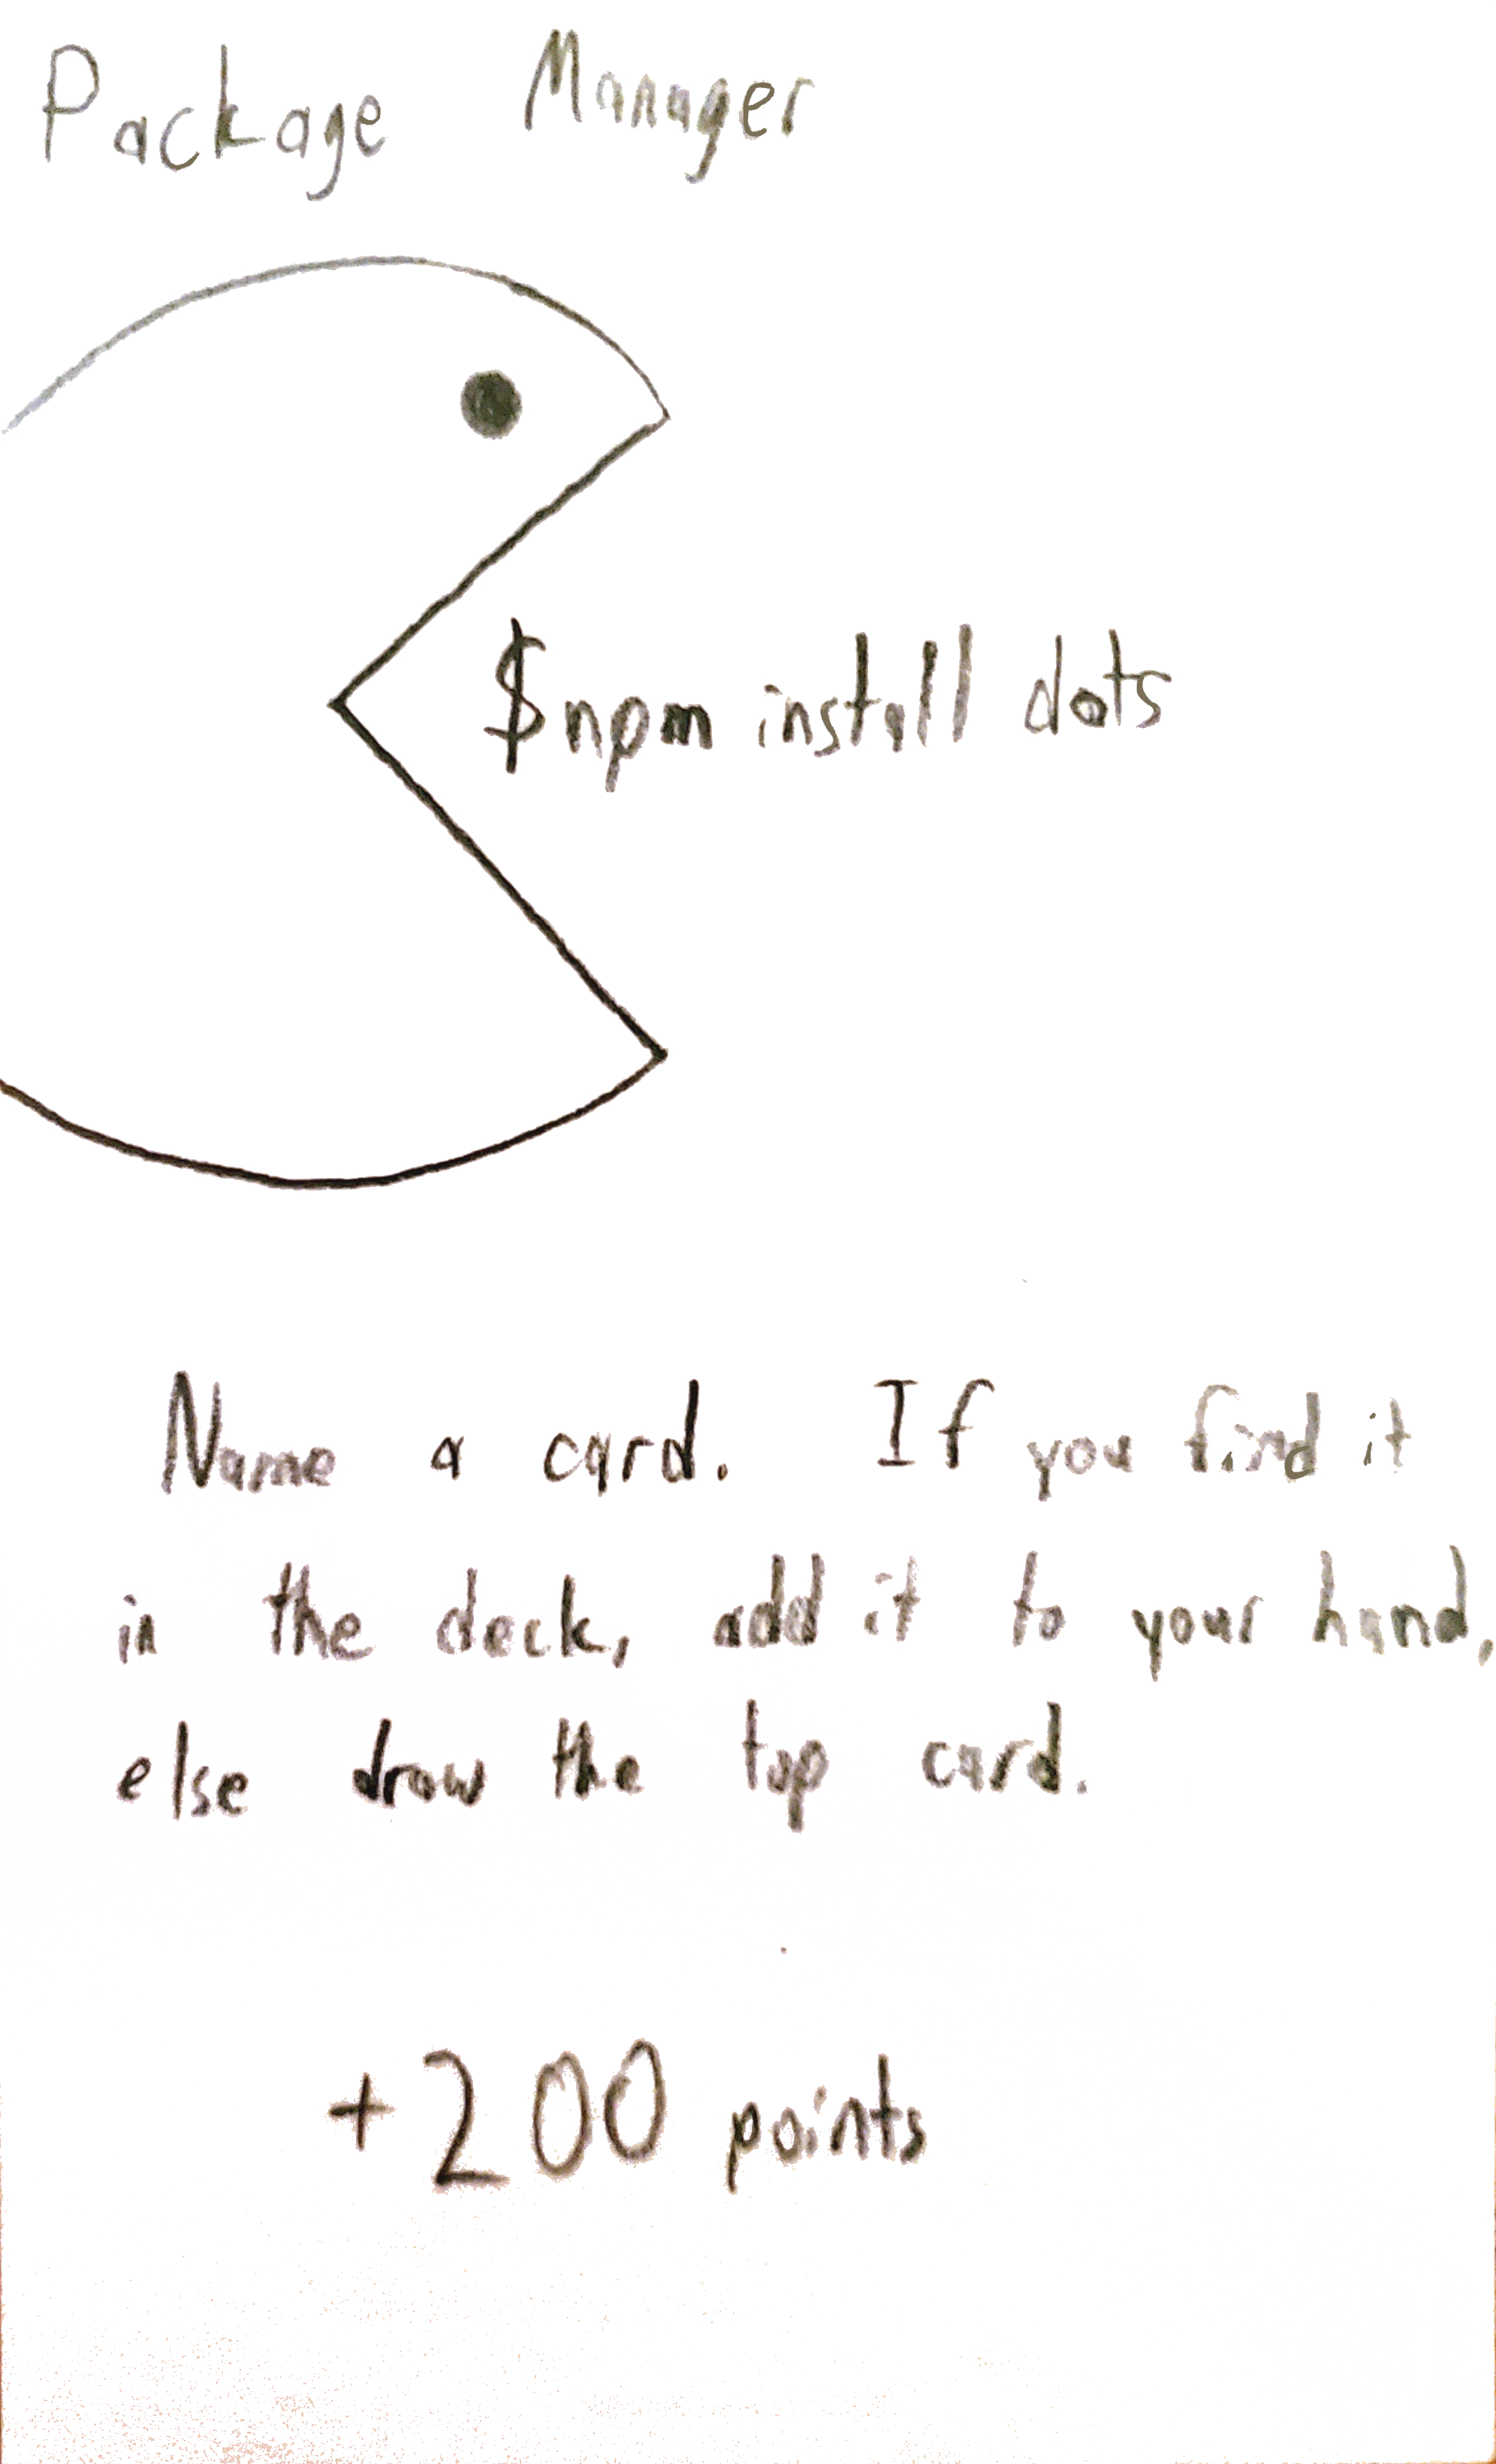 Package Manager
$npm install dots
Name a card. If you find it
in the deck, add it to your hand,
else draw the top card.
+200 points